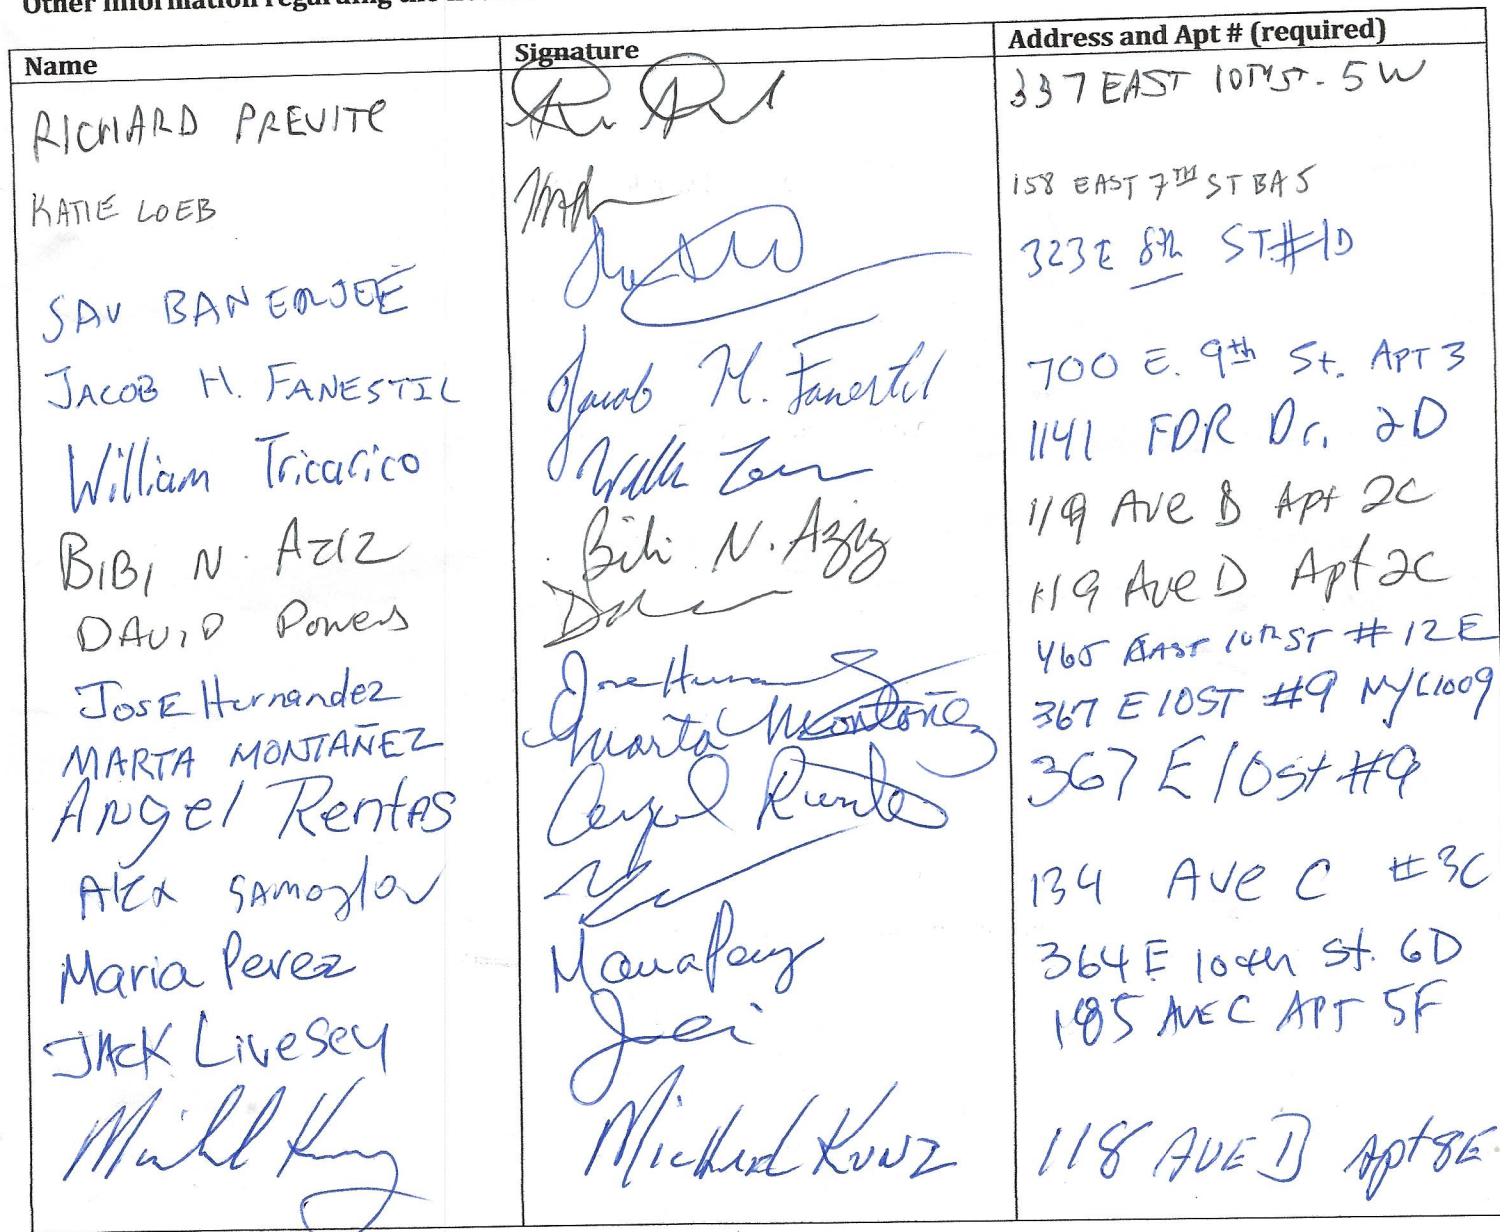 Other information regarding the
Name Signature Address and Apt # (required)
RICHARD PREVITE 337 EAST 10TH ST. 5W
KATIE LOEB 158 EAST 7TH ST BA5
SAV BANERJEE 323 E 8th ST #1D
JACOB H. FANESTIL Jacob H. Fanestil 700 E. 9th St. APT 3
William Tricarico 1141 FDR Dr. 2D
BIBI N. AZIZ Bibi N. Aziz 119 Ave B Apt 2C
DAVID Powers 119 Ave D Apt 2C
JOSE Hernandez 465 EAST 10TH ST # 12E
MARTA MONTAÑEZ Marta Montañez 367 E 10ST #9 NYC 1009
Angel Rentas Angel Rentas 367 E 10st #9
Alex Samoylov 134 Ave C #3C
Maria Perez Maria Perez 364 E 10th St. 6D
JACK Livesey 185 AVE C APT 5F
Michael Kunz 118 AVE D Apt 8E